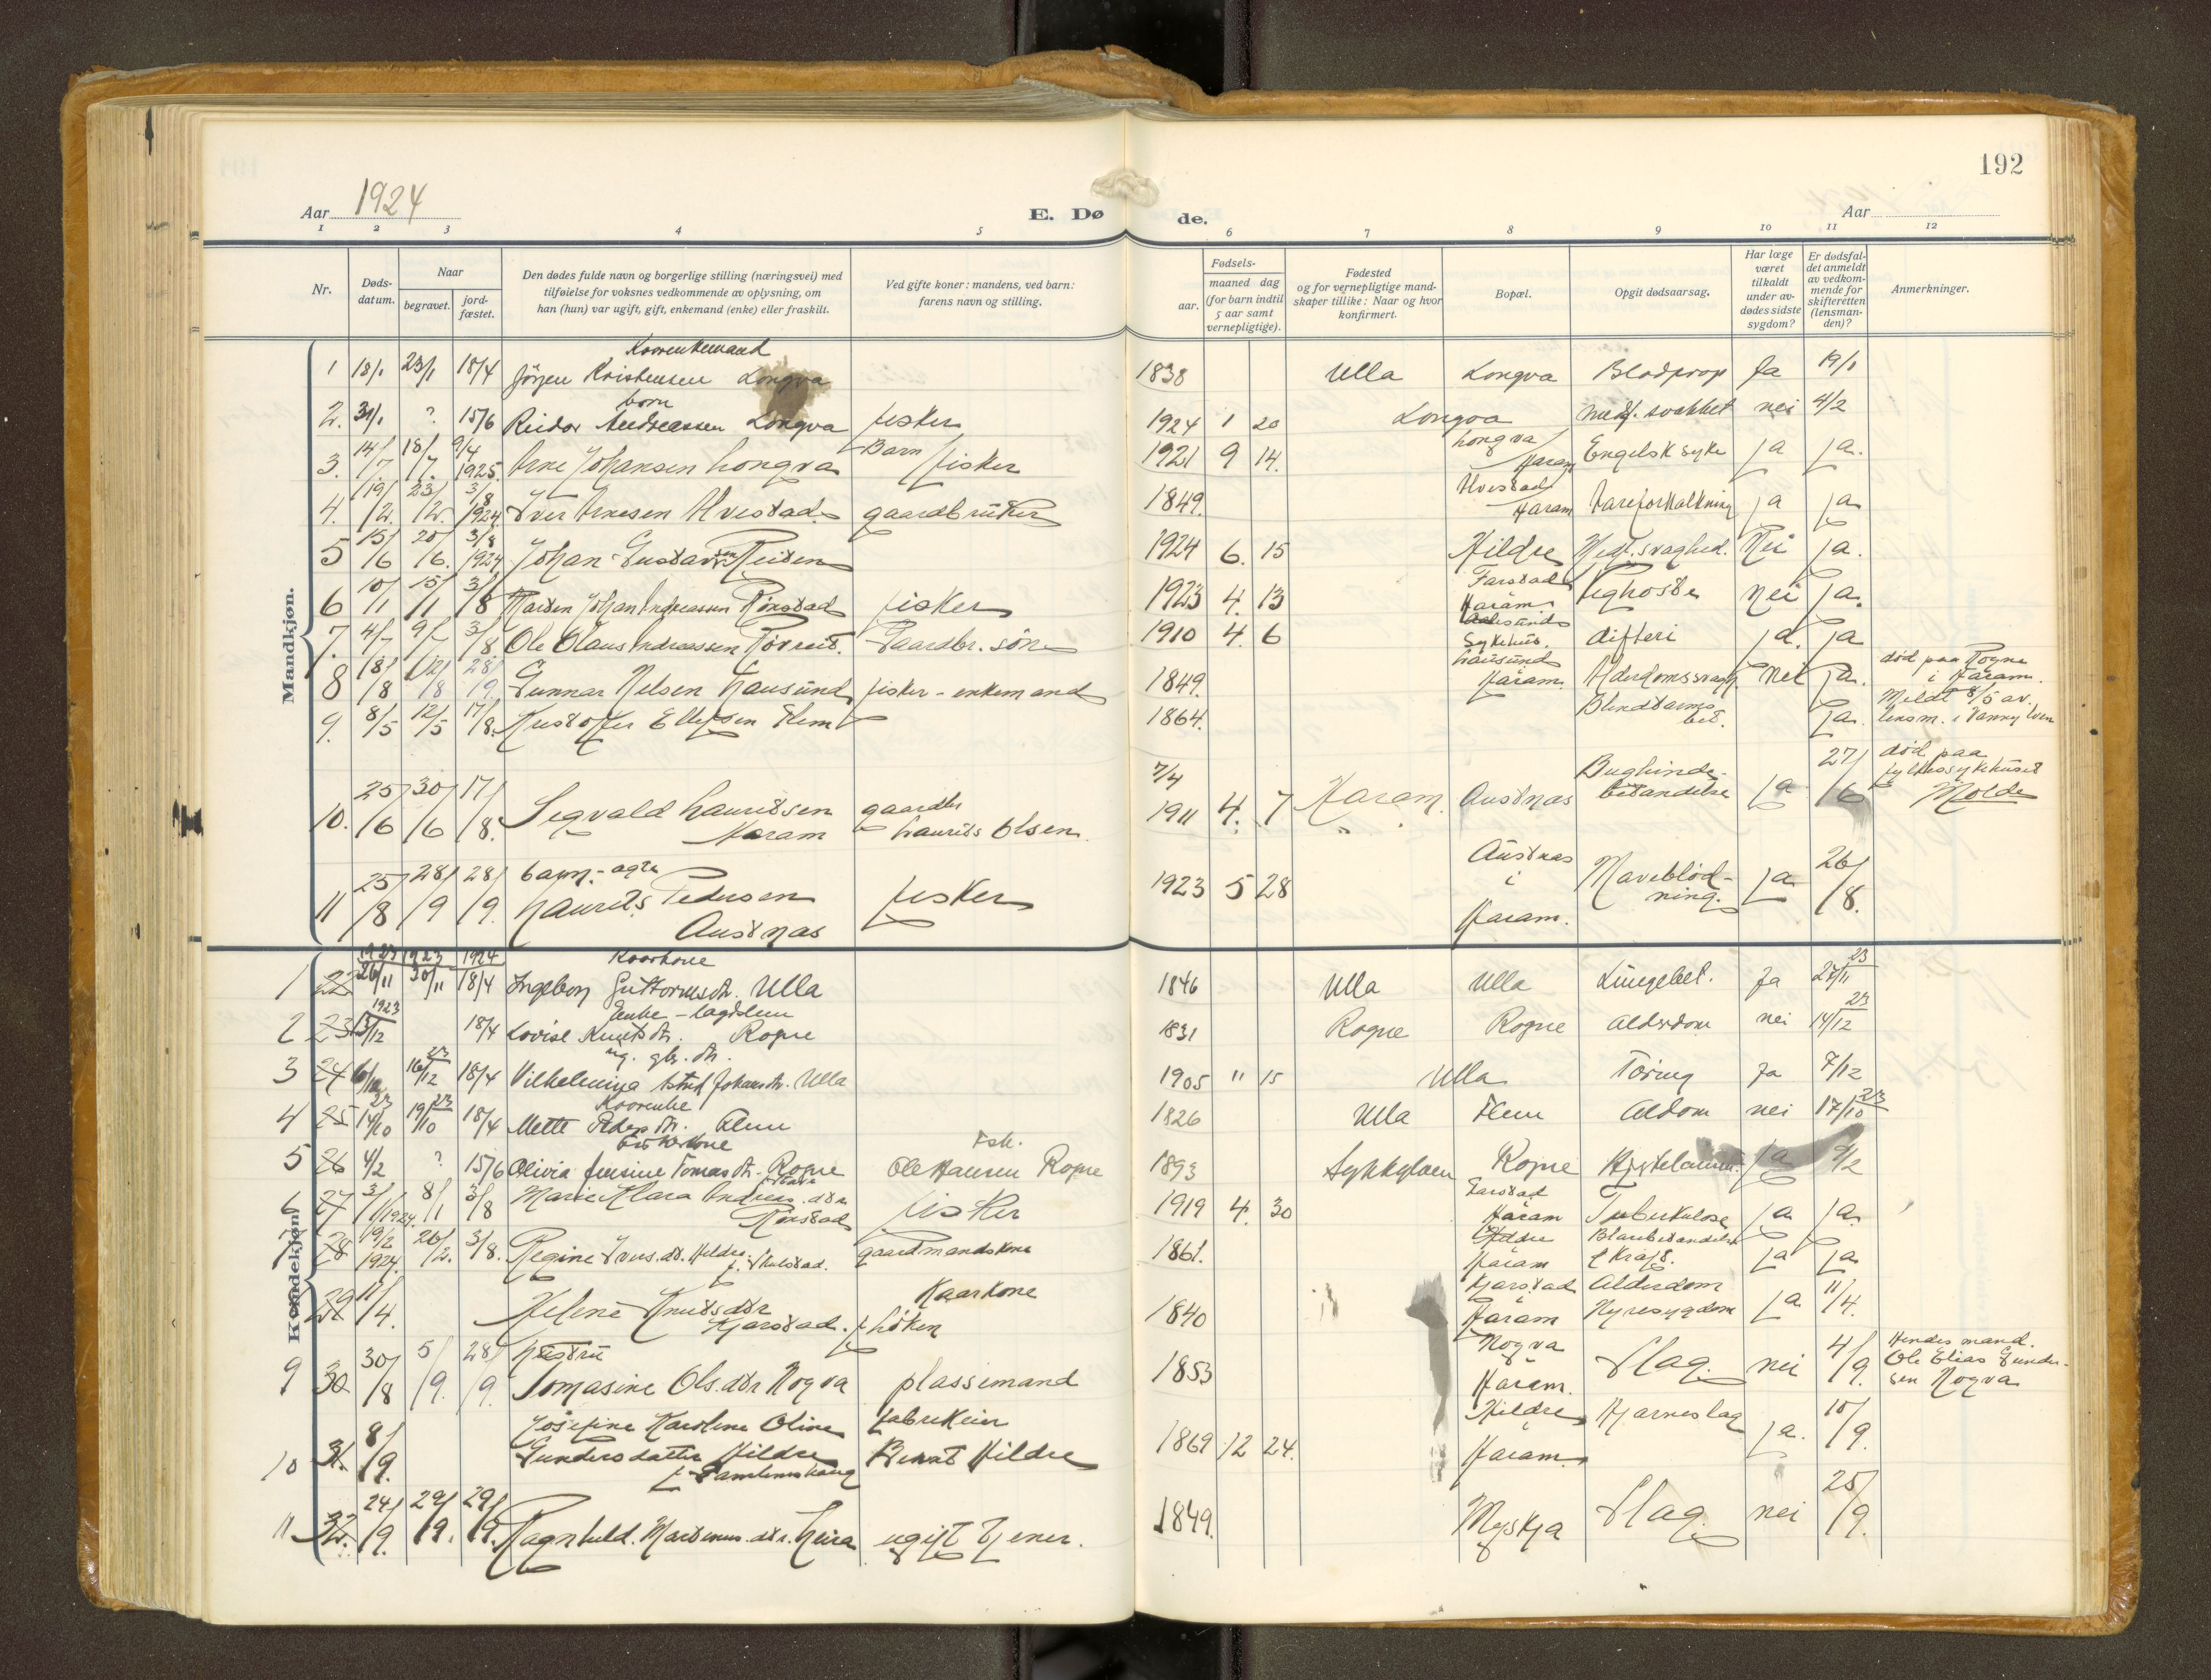 192
Aar 1924
E. Dø de.
Aar
1 2 3 4 5 6 7 8 9 10 11 12
Nr.
Døds-datum.
Naar
begravet.
jord-fæstet.
Den dødes fulde navn og borgerlige stilling (næringsvei) med
tilføielse for voksnes vedkommende av oplysning, om
han (hun) var ugift, gift, enkemand (enke) eller fraskilt.
Ved gifte koner: mandens, ved barn:
farens navn og stilling.
Fødsels-
aar.
maaned dag
(for barn indtil
5 aar samt
vernepligtige).
Fødested
og for vernepligtige mand-
skaper tillike: Naar og hvor
konfirmert.
Bopæl.
Opgit dødsaarsag.
Har læge
været
tilkaldt
under av-
dødes sidste
sygdom?
Er dødsfal-
det anmeldt
av vedkom-
mende for
skifteretten
(lensman-
den)?
Anmerkninger.
Mandkjøn.
1 18/1 23/1 18/4 Jörgen Kristensen Longva 1838 Ulla Longva Blodprop Ja 19/1
2. 31/1 ? 15/6 barn
Reidar Andreassen Longva fisker 1924 1 20 Longva medf. svakhet nei 4/2
3. 14/7 18/7. 9/4 1925. Arne Johansen Longva Barn fisker 1921 9 14. Longva Haram Engelsk syke ja ja.
4. 19/2. 23/2. 3/8 1924. Iver Arnesen Hvestad gaardbruker 1849. Hvestad Haram Aareforkalkning ja ja
5 15/6 20/6. 3/8 1924 Johan Gustavsen 1924 6. 15 Hildre Medf. svaghed. Nei ja.
6 10/1 15/1 3/8 Johan Andreassen fisker 1923 4. 13 Farstad Haram Kighoste nei ja.
7. 4/7 9/7 3/8 Ole Olaus Andreassen Gaardbr. søn 1910 4. 6 Aalesunds Sykehus. difteri ja. ja
8 18/8 28/9. Gunnar Nelsen Lausund fisker - enkemand 1849. Lausund Haram. Alderdomssvagh. nei ja. död paa Rogne i Haram.
9. 8/5 12/5 17/8. Kristoffer Ellefsen Flem 1864. ja. Meldt 8/5 av lensm. i Vannylven
10. 25/6 30/6 17/8. Sigvald Lauritsen Haram gaardbr Laurits Olsen 7/4 1911 4. 7 Haram. Austnas Bughinde-betandelse ja 27/6 død paa fylkessykehuset Molde
11 25/8 28/9 28/9. barn - agte
Laurits Pedersen Austnas fisker 1923 5 28 Austnas i Haram. Maveblöd-ning. ja 26/8.
Kvindekjøn.
1 22 1923 26/11 1923 30/11 1924 18/4 Kaarkone
Ingeborg Guttormsdt. Ulla 1846 Ulla Ulla Lungebet. Ja 27/11 23
2 23 1923 13/12 18/4 Enke - lægdslem
Lovise Knutsdt. Rogne 1831 Rogne Rogne Alderdom nei 14/12 23
3 24 16/12 23 18/4 ug. gbr. dt.
Vilhelmina Astrid Johansdt. Ulla 1905 11 15 Ulla Töring Ja 7/12
4 25 14/10 23 19/10 23 18/4 Kaarenke
Mette Pedersdt. Flem 1826 Ulla Flem Aldom nei 17/10 23
5 26 4/2 ? 15/6 Olivia Jensine Tomasdt. Rogne Fsk.
Ole Hansen Rogne 1893 Sykkylven Rogne ja 9/2
6 27 3/1 1924. 8/1 3/8 Marie Klara Andreas. dtr fisker 1919 4. 30 Farstad Haram Tuberkulose ja ja.
7 28 19/2 1924. 26/2. 3/8. Regine Ivers. dt. Hildre gaardmandskone 1861. Hildre Haram Kraft. ja ja
29 11/4. Helene Knutsdtr Kjarstad. Kaarkone 1840 Kjarstad Haram Alderdom Nyresygdom ja 11/4.
9 30 30/8 5/9. 28/9. hustru
Tomasine Ols. dtr Nogva plassemand 1853 Nogva Haram. Slag. nei 4/9. Hendes mand. Ole Elias Gunder-sen Nogva
10 31. 8/9. Josefine Karoline Oline
Gundersdatter Hildre
fabrikeier
Bernt Hildre 1869 12 24. Hildre i Haram. Hjarneslag ja. 10/9.
11 32. 24/9. 29/9. 29/9. Ragnhild. Martinus. dtr. ugift tjener. 1849. Myskja Slag. nei 25/9.